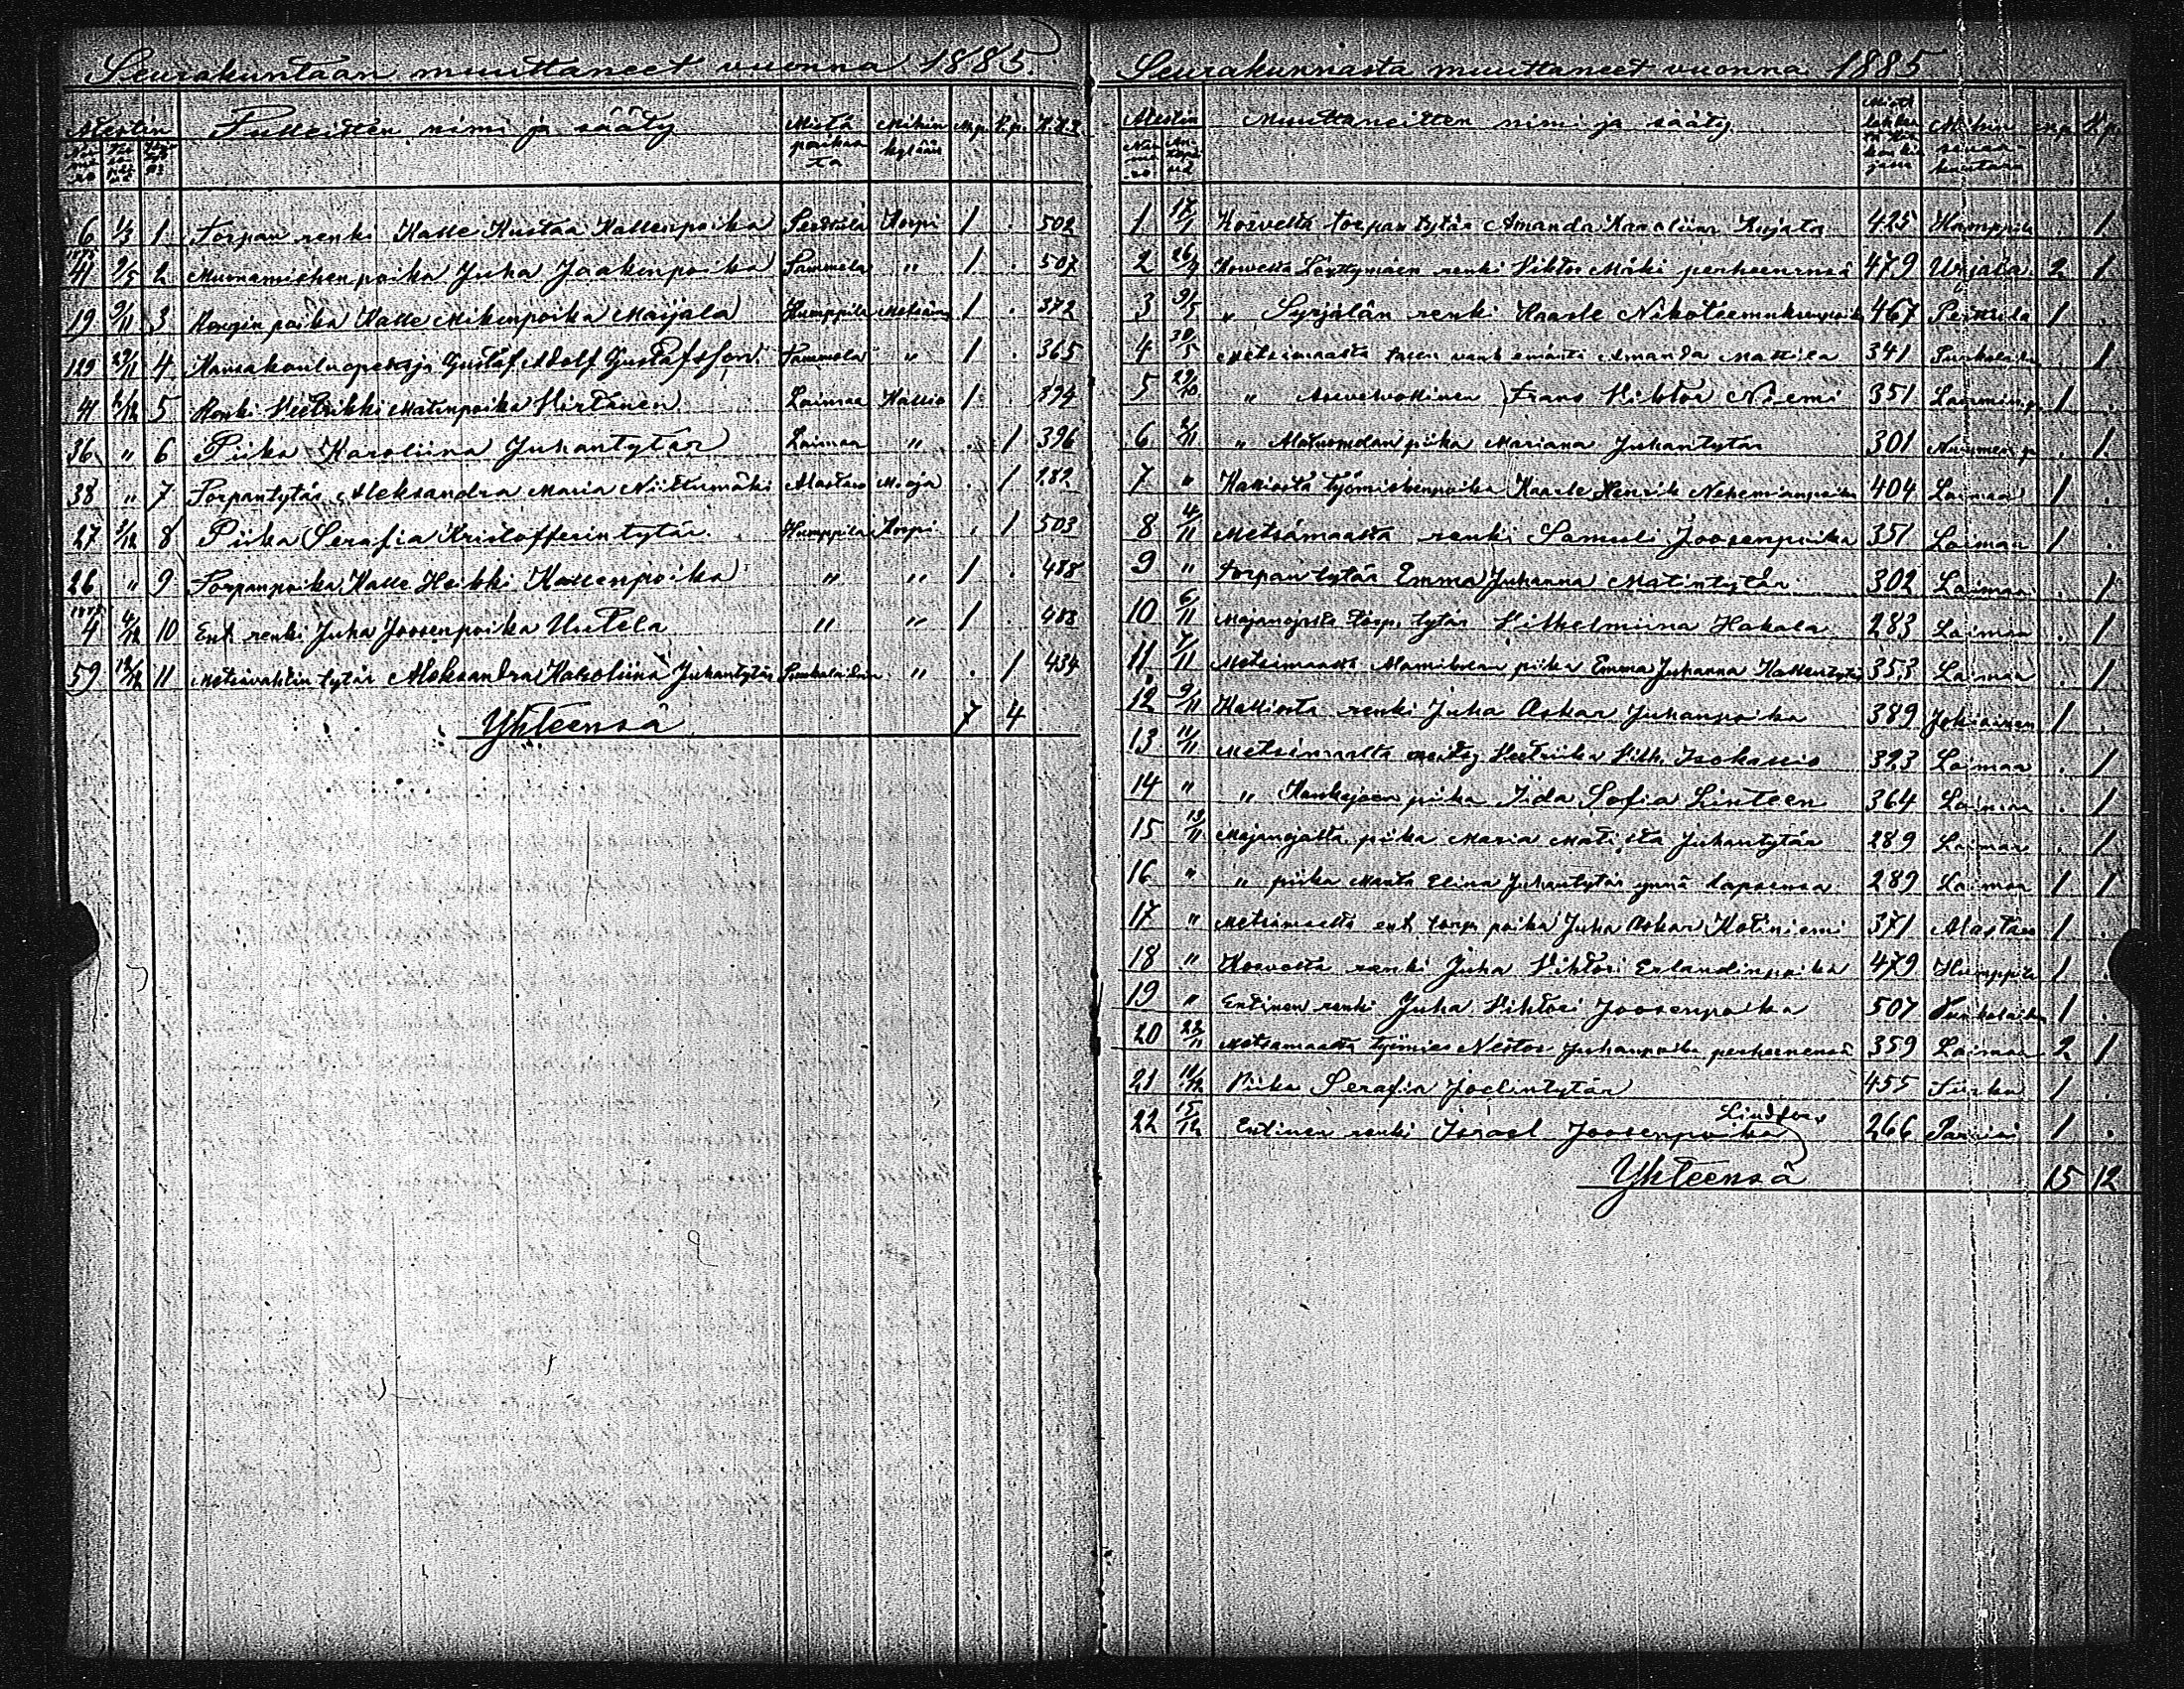 Seurakuntaan muuttaneet vuonna 1885.
Alestin Tulleitten nimi ja sääty Mistä paikasta Mihin kylään M.p. V.p.
6 1/3 1 Torpan renki Kalle Kustaa Kallenpoika Korpi 1 . 502
41 9/5 2 Muonamiehen poika Juha Jaakenpoika Tammela " 1 . 507
19 9/11 3 Rengin poika Kalle Mikenpoika Maijala Humppila Metsäm 1 . 372
129 27/11 4 Kansakoulu opettaja Gustaf Adolf Gustafsson Tammela " 1 . 365
41 2/12 5 Renki Vietrikki Matinpoika Virtanen Loimaa Kallio 1 . 394
36 " 6 Piika Karoliina Juhantytär Loimaa " . 1 396
38 " 7 Torpantytär Aleksandra Maria Niittumäki Alastaro M:oja . 1 282
27 3/12 8 Piika Serafia Kristofferintytär Humppila Korpi . 1 503
26 " 9 Torpanpoika Kalle Heikki Kallenpoika " " 1 . 488
4 4/12 10 Ent renki Juha Joosenpoika Uutela " " 1 . 488
59 12/12 11 Metsävahtin tytär Aleksandra Karoliina Juhantytär Punkalaidun " . 1 434
Yhteensä 7 4
Seurakunnasta muuttaneet vuonna 1885
Alestin Muuttaneitten nimi ja sääty Mihin seurakuntaan m.p. V.p.
1 17/1 Koivelta torpan tytär Amanda Karoliina Kujala 425 Humppila . 1
2 26/4 Koivelta Löyttymäen renki Viktor Mäki perheenensä 479 Urjala 2 1
3 9/5 " Syrjälän renki Kaarle Nikoteemuksenpoika 467 Perttula 1 .
4 30/5 Metsämaasta emäntä Amanda Mattila 341 Punkalaidun . 1
5 29/10 " Frans Viktor Niemi 351 1 .
6 2/11 " piika Mariana Juhantytär 301 . 1
7 " Kalliosta työmiehenpoika Kaarle Henrik Nehemianpoika 404 Loimaa 1 .
8 4/11 Metsämaasta renki Samuli Joosenpoika 351 Loimaa 1 .
9 " torpan tytär Emma Juhanna Matintytär 302 Loimaa . 1
10 6/11 Majanojasta torp. tytär Vilhelmiina Hakala 283 Loimaa . 1
11 7/11 Metsämaasta piika Emma Juhanna Kallentytär 353 Loimaa . 1
12 9/11 Kalliosta renki Juha Oskar Juhanpoika 389 Jokioinen 1 .
13 11/11 Metsämaalta Vilh. Isokallio 323 Loimaa . 1
14 " " piika Iida Sofia Linteen 364 Loimaa . 1
15 13/11 Majanojalta piika Maria Matilta Juhantytär 289 Loimaa . 1
16 " " piika Manta Elina Juhantytär ynnä lapsensa 289 Loimaa 1 1
17 " Metsämaalta ent torp. poika Juha Oskar Kotiniemi 371 Alastaro 1 .
18 " Koivelta renki Juha Vihtori Erlandinpoika 479 Humppila 1 .
19 " Entinen renki Juha Vihtori Joosenpoika 507 Punkalaidun 1 .
20 23/11 Metsämaalta työmies Nestor Juhanpoika perheenensä 359 Loimaa 2 1
21 11/12 Piika Serafia Joelintytär 455 1 .
22 15/12 Entinen renki Israel Joosenpoika Lindfors 266 1 .
Yhteensä 15 12